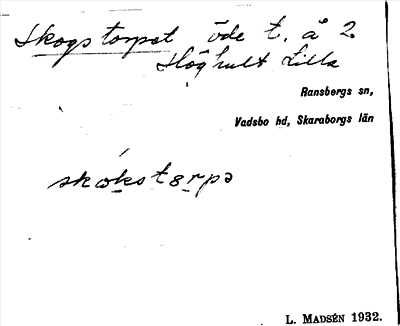 Skogstorpet öde t. å 2
Höghult Lilla
Ransbergs sn,
Vadsbo hd, Skaraborgs län
skokstərpə
L. MADSÉN 1932.